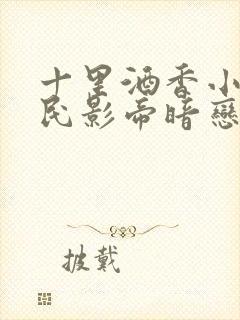 十里酒香小
民影帝暗戀
披戴